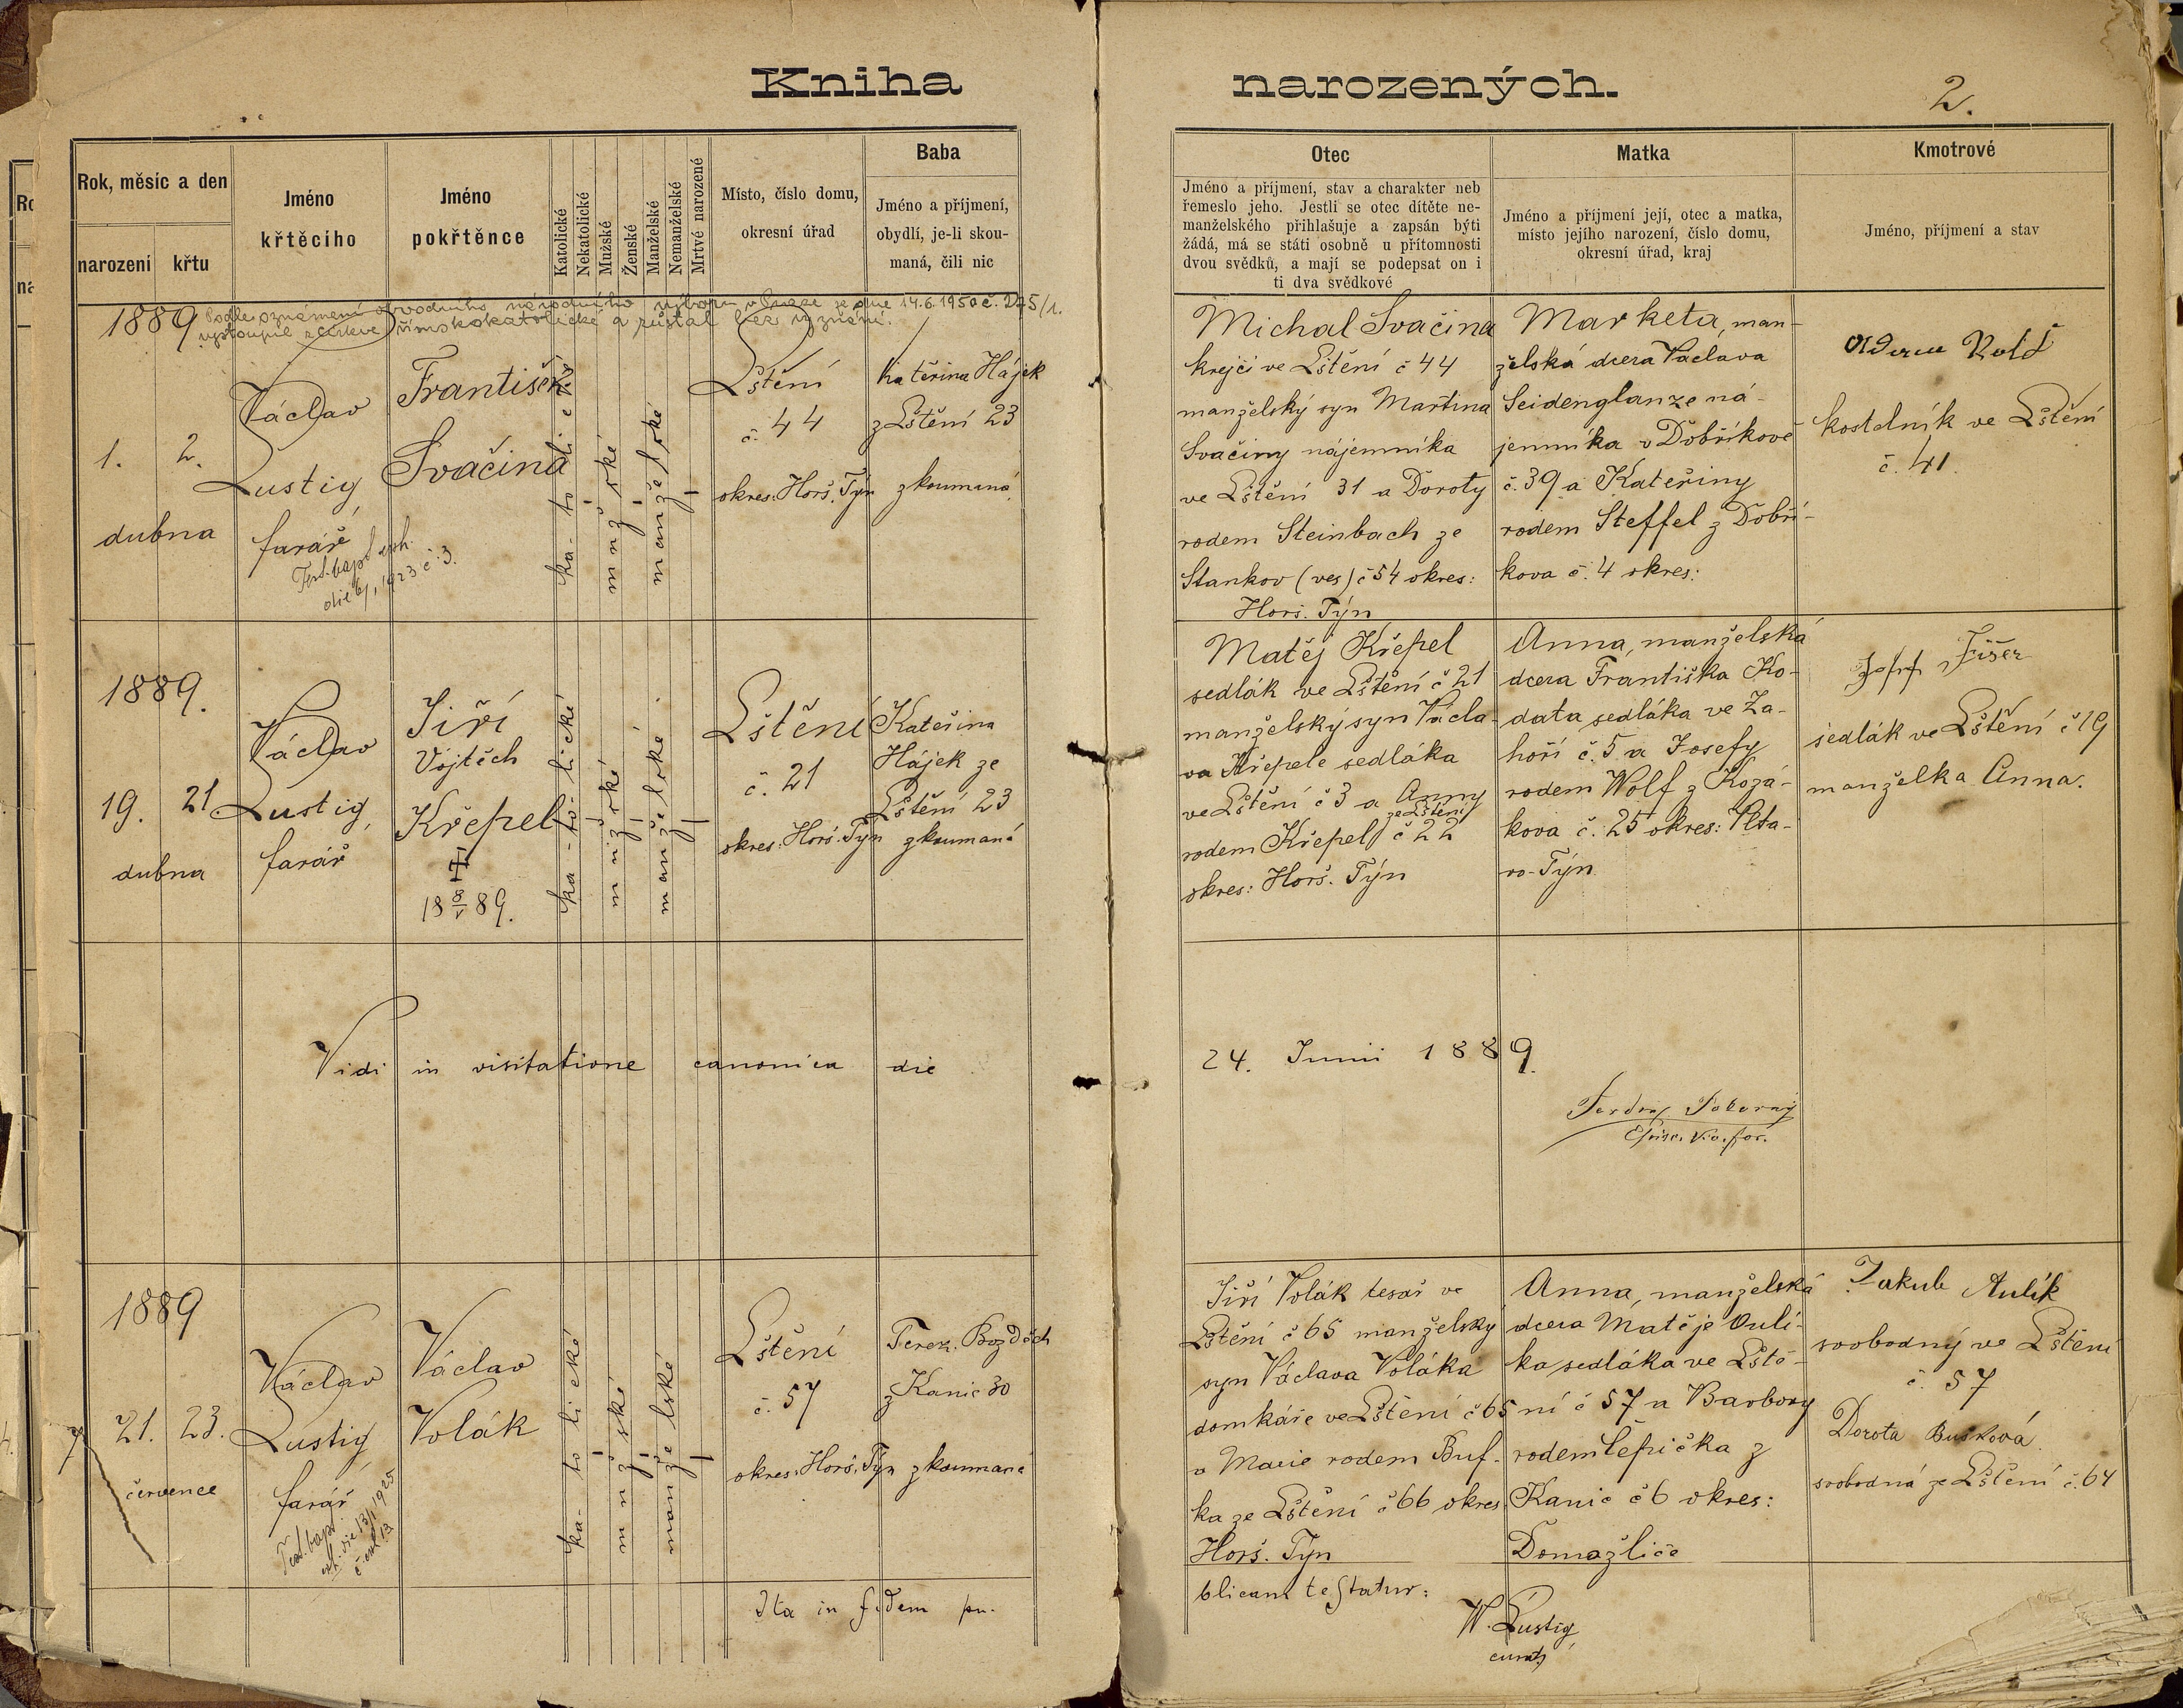 Kniha narozených.
2.
Rok, měsíc a den
narození
křtu
Jméno
křtěcího
Jméno
pokřtěnce
Katolické
Nekatolické
Mužské
Ženské
Manželské
Nemanželské
Mrtvé narozené
Místo, číslo domu,
okresní úřad
Baba
Jméno a příjmení,
obydlí, je-li skou-
maná, čili nic
Otec
Jméno a příjmení, stav a charakter neb
řemeslo jeho. Jestli se otec dítěte ne-
manželského přihlašuje a zapsán býti
žádá, má se státi osobně u přítomnosti
dvou svědků, a mají se podepsat on i
ti dva svědkové
Matka
Jméno a příjmení její, otec a matka,
místo jejího narození, číslo domu,
okresní úřad, kraj
Kmotrové
Jméno, příjmení a stav
Podle oznámení obvodního národního výboru v Praze ze dne 14.6.1950 č. 275/1.
vystoupil z církve římskokatolické a zůstal bez vyznání.
1889
1. 2.
dubna
Václav
Lustig,
farář
Test. bapt. exh.
die 1923 č. 3.
František
Svačina
katolické
mužské
manželské
Lštění
č. 44
okres: Horš. Týn
Kateřina Hájek
z Lštění 23
zkoumaná
Michal Svačina
krejčí ve Lštění č 44
manželský syn Martina
Svačiny nájemníka
ve Lštění 31 a Doroty
rodem Steinbach ze
Stankov (ves) č 54 okres:
Horš. Týn
Marketa, man-
želská dcera Václava
Seidenglanze ná-
jemníka v Dobříkově
č. 39 a Kateřiny
rodem Steffel z Dobří-
kova č. 4 okres:
kostelník ve Lštění
č. 41.
1889.
19. 21
dubna
Václav
Lustig,
farář
Jiří
Vojtěch
Křepel
18 8/V 89.
ka-to-lické
mužské
manželské
Lštění
č. 21
okres: Horš. Týn
Kateřina
Hájek ze
Lštění 23
zkoumaná
Matěj Křepel
sedlák ve Lštění č 21
manželský syn Václa-
va Křepele sedláka
ve Lštění č 3 a Anny
ze Lštění
rodem Křepel č 22
okres: Horš. Týn
Anna, manželská
dcera Františka Ko-
data sedláka ve Za-
hoří č. 5 a Josefy
rodem Wolf z Kozá-
kova č. 25 okres: Vlta-
vo-Týn
Josef Fišer
sedlák ve Lštění č 19
manželka Anna.
Vidi in visitatione canonica die 24. Junii 1889.
Ferdin. Pokorný
Episc. Vic. for.
1889
21. 23.
července
Václav
Lustig
farář
Test. bapt.
exh. die 13/1 1925
Václav
Volák
ka-to-lické
mužské
manželské
Lštění
č. 57
okres: Horš. Týn
Terez. Bozděch
z Kanic 30
zkoumaná
Jiří Volák tesař ve
Lštění č 65 manželský
syn Václava Voláka
domkáře ve Lštění č 65
a Marie rodem Buf-
ka ze Lštění č 66 okres
Horš. Týn
Anna, manželská
dcera Matěje Auli-
ka sedláka ve Lště-
ní č 57 a Barbory
rodem Čepička z
Kanic č 6 okres:
Domažlice
Jakub Aulík
svobodný ve Lštění
č. 57
Dorota Bušková
svobodná ze Lštění č. 64
Ita in fidem pu-
blicam testatur:
W. Lustig